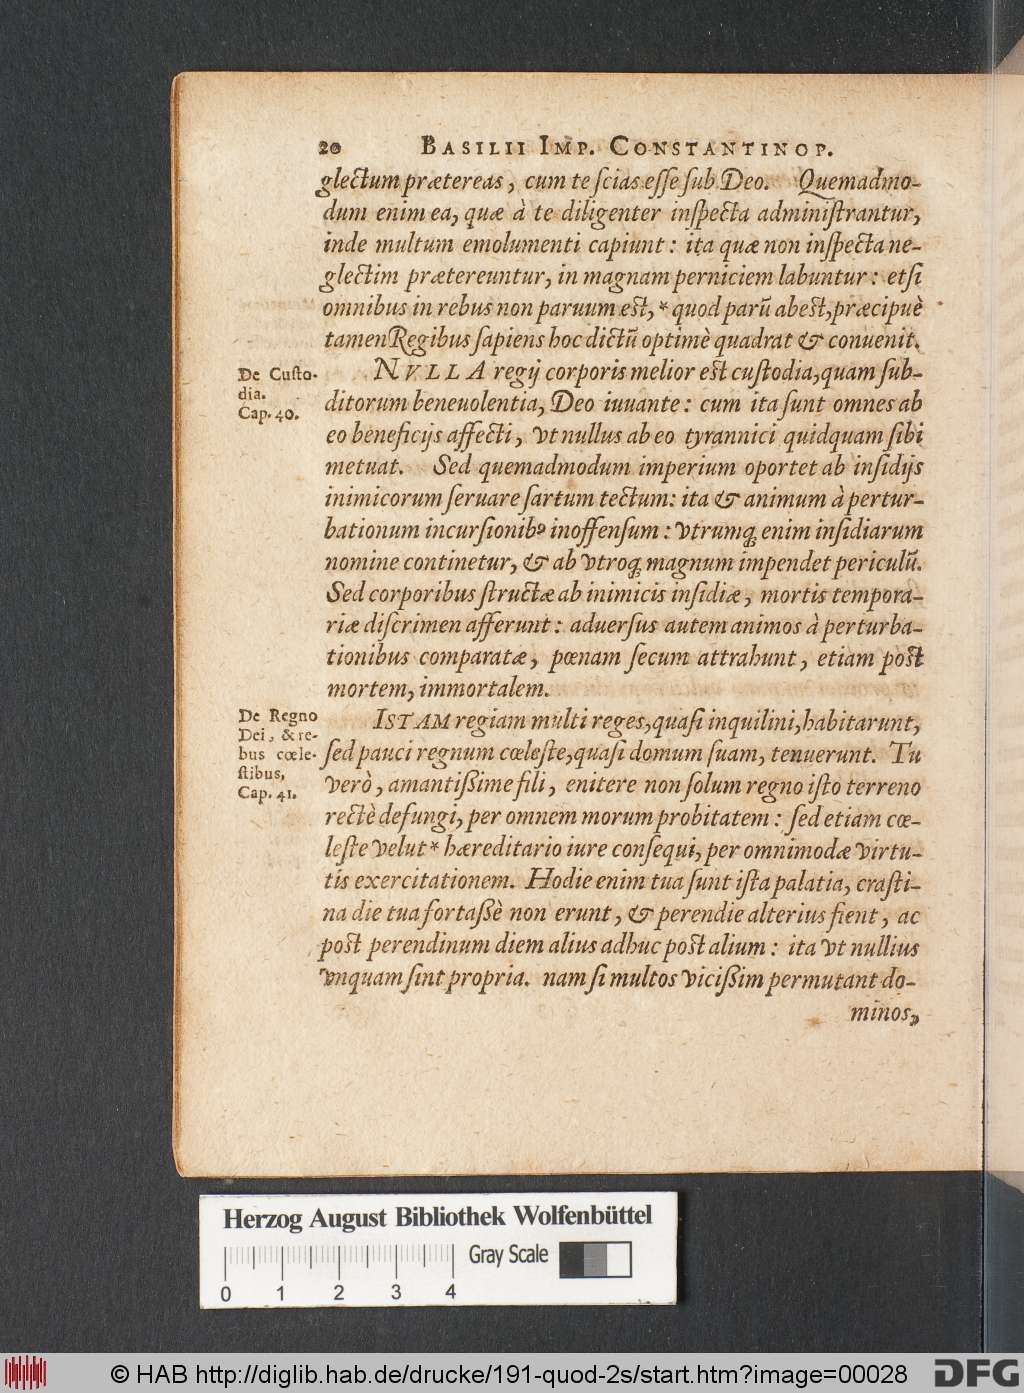 20 BASILII IMP. CONSTANTINOP.
glectum prætereas, cum te ſcias eſſe ſub Deo. Quemadmo-
dum enim ea, quæ à te diligenter inſpecta adminiſtrantur,
inde multum emolumenti capiunt: ita quæ non inſpecta ne-
glectim prætereuntur, in magnam perniciem labuntur: etſi
omnibus in rebus non paruum eſt, * quod parũ abeſt, præcipuè
tamen Regibus ſapiens hoc dictũ optimè quadrat & conuenit.
De Cuſto-
dia.
Cap. 40.
NVLLA regij corporis melior eſt cuſtodia, quam ſub-
ditorum beneuolentia, Deo iuuante: cum ita ſunt omnes ab
eo beneficijs affecti, vt nullus ab eo tyrannici quidquam ſibi
metuat. Sed quemadmodum imperium oportet ab inſidijs
inimicorum ſeruare ſartum tectum: ita & animum à pertur-
bationum incurſionibꝰ inoffenſum: vtrumq; enim inſidiarum
nomine continetur, & ab vtroq; magnum impendet periculũ.
Sed corporibus ſtructæ ab inimicis inſidiæ, mortis tempora-
riæ diſcrimen afferunt: aduerſus autem animos à perturba-
tionibus comparatæ, pœnam ſecum attrahunt, etiam poſt
mortem, immortalem.
De Regno
Dei, & re-
bus cœle-
ſtibus,
Cap. 41.
ISTAM regiam multi reges, quaſi inquilini, habitarunt,
ſed pauci regnum cœleſte, quaſi domum ſuam, tenuerunt. Tu
verò, amantißime fili, enitere non ſolum regno iſto terreno
rectè defungi, per omnem morum probitatem: ſed etiam cœ-
leſte velut * hæreditario iure conſequi, per omnimodæ virtu-
tis exercitationem. Hodie enim tua ſunt iſta palatia, craſti-
na die tua fortaßè non erunt, & perendie alterius fient, ac
poſt perendinum diem alius adhuc poſt alium: ita vt nullius
vnquam ſint propria. nam ſi multos vicißim permutant do-
minos,
Herzog August Bibliothek Wolfenbüttel
Gray Scale
0 1 2 3 4
© HAB http://diglib.hab.de/drucke/191-quod-2s/start.htm?image=00028
DFG